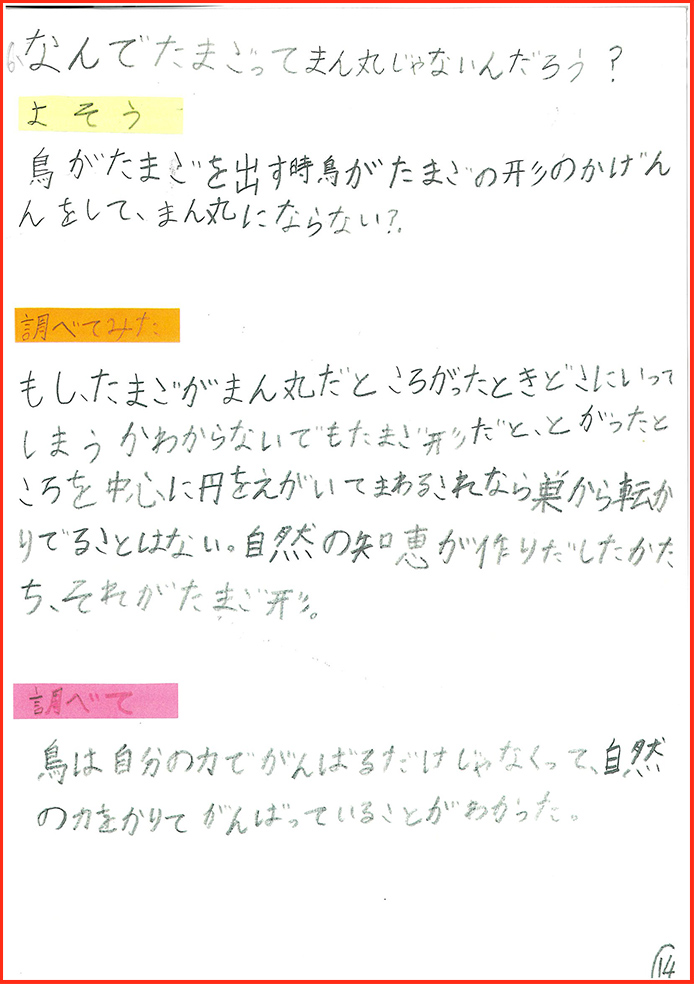 6、なんでたまごってまん丸じゃないんだろう?
よそう
鳥がたまごを出す時鳥がたまごの形のかげん
んをして、まん丸にならない?
調べてみた
もし、たまごがまん丸だと ころがったときどこにいって
しまう かわからないでもたまご形だと、とがったと
ころを中心に円をえがいてまわるこれなら巣から転が
りでることはない。自然の知恵が作りだしたかた
ち、それがたまご形。
調べて
鳥は自分の力でがんばるだけじゃなくって、自然
の力をかりてがんばっていることがわかった。
14